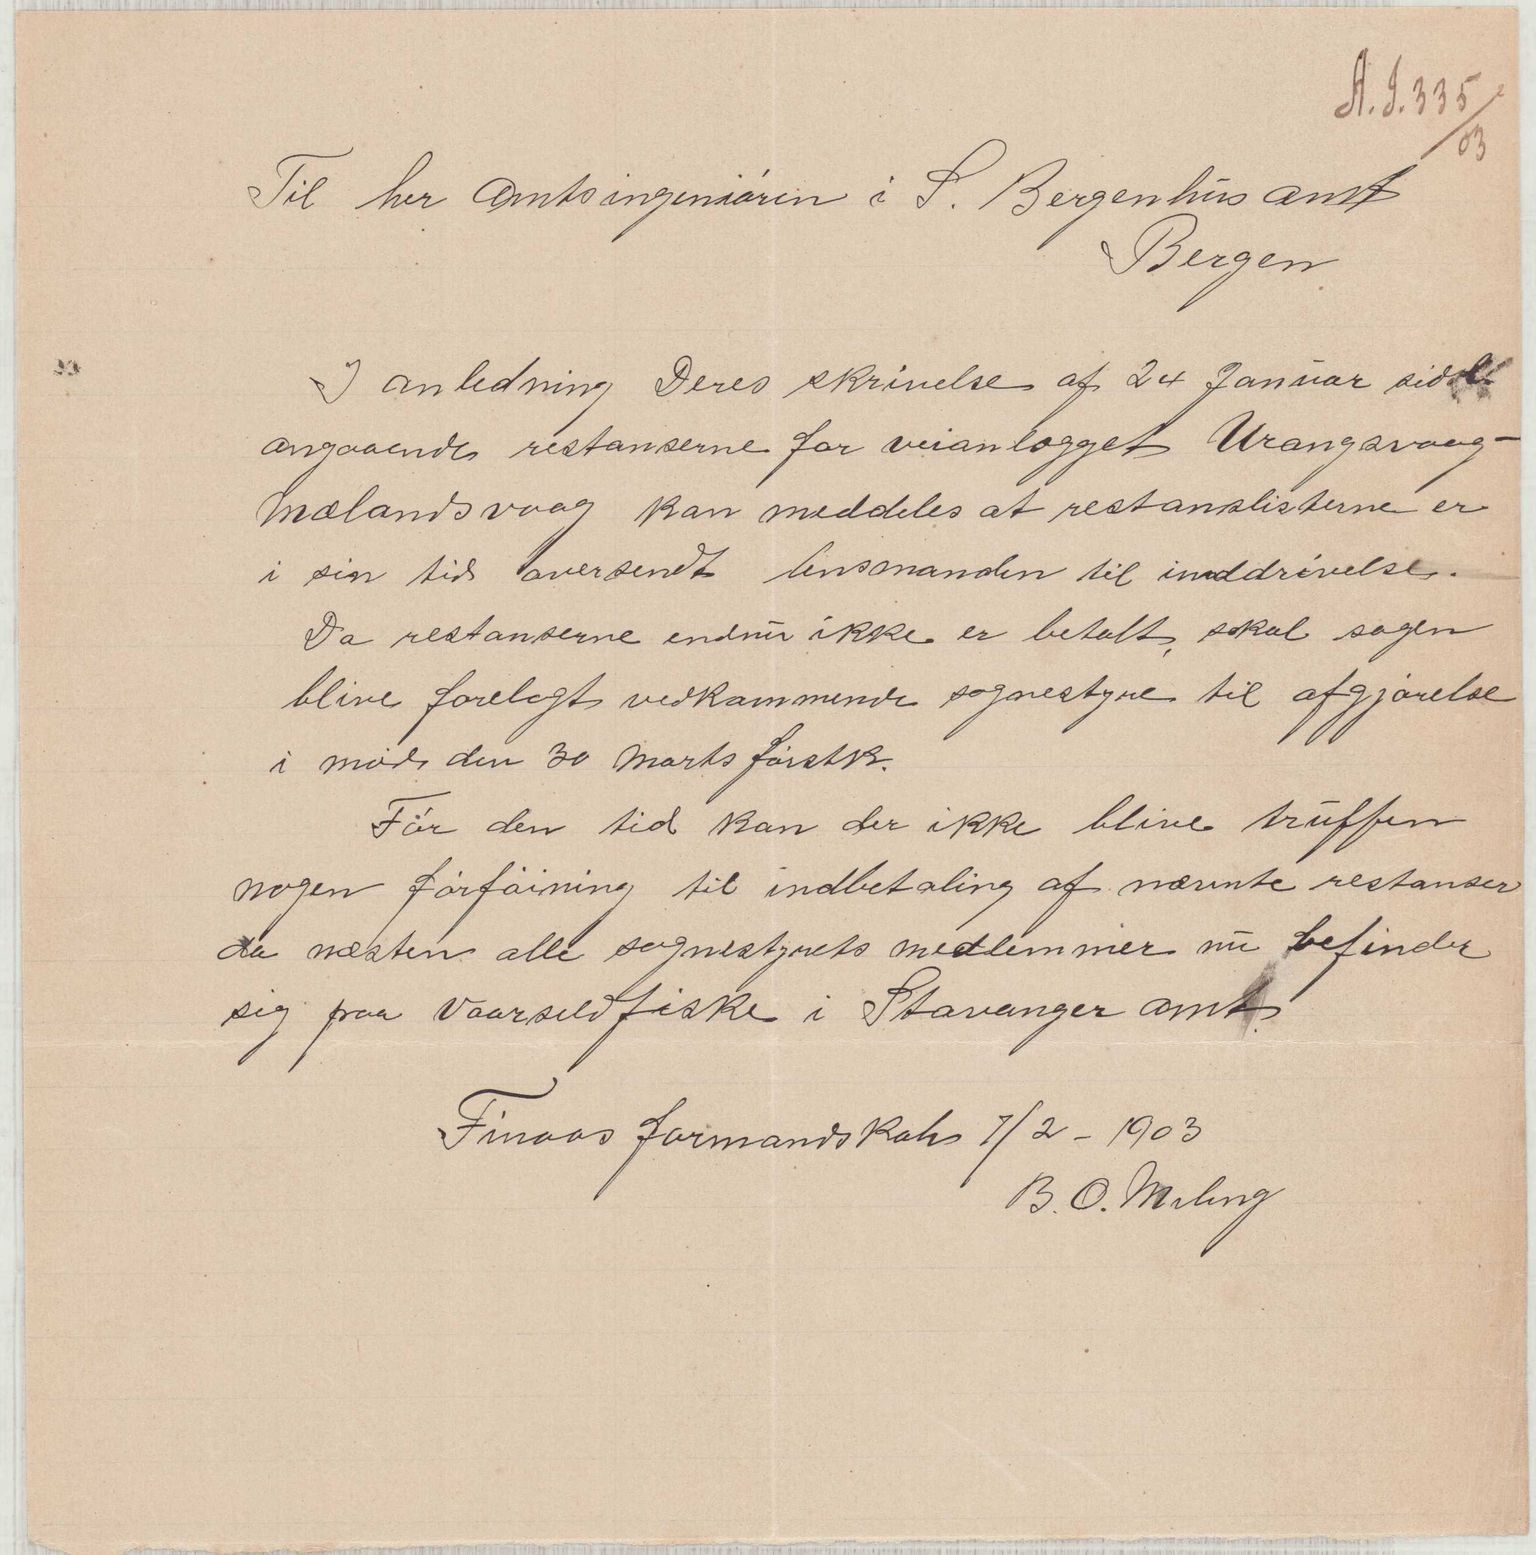 A.I. 335/03
Til her Amtsingeniören i S. Bergenhus amt
Bergen
I anledning Deres skrivelse af 24 Januar sidstl.
angaaende restanserne for veianlægget Urangsvaag-
Mælandsvaag kan meddeles at restanslisterne er
i sin tid oversendt lensmanden til inddrivelse.
Da restanserne endnu ikke er betalt, skal sagen
blive forelagt vedkommende sognestyre til afgjørelse
i möde den 30 Marts förstk.
För den tid kan der ikke blive truffen
nogen förföining til indbetaling af nævnte restanser
da næsten alle sognestyrets medlemmer nu befinder
sig paa Vaarsildfiske i Stavanger amt.
Finaas formandskab 7/2 - 1903
B. O. Meling